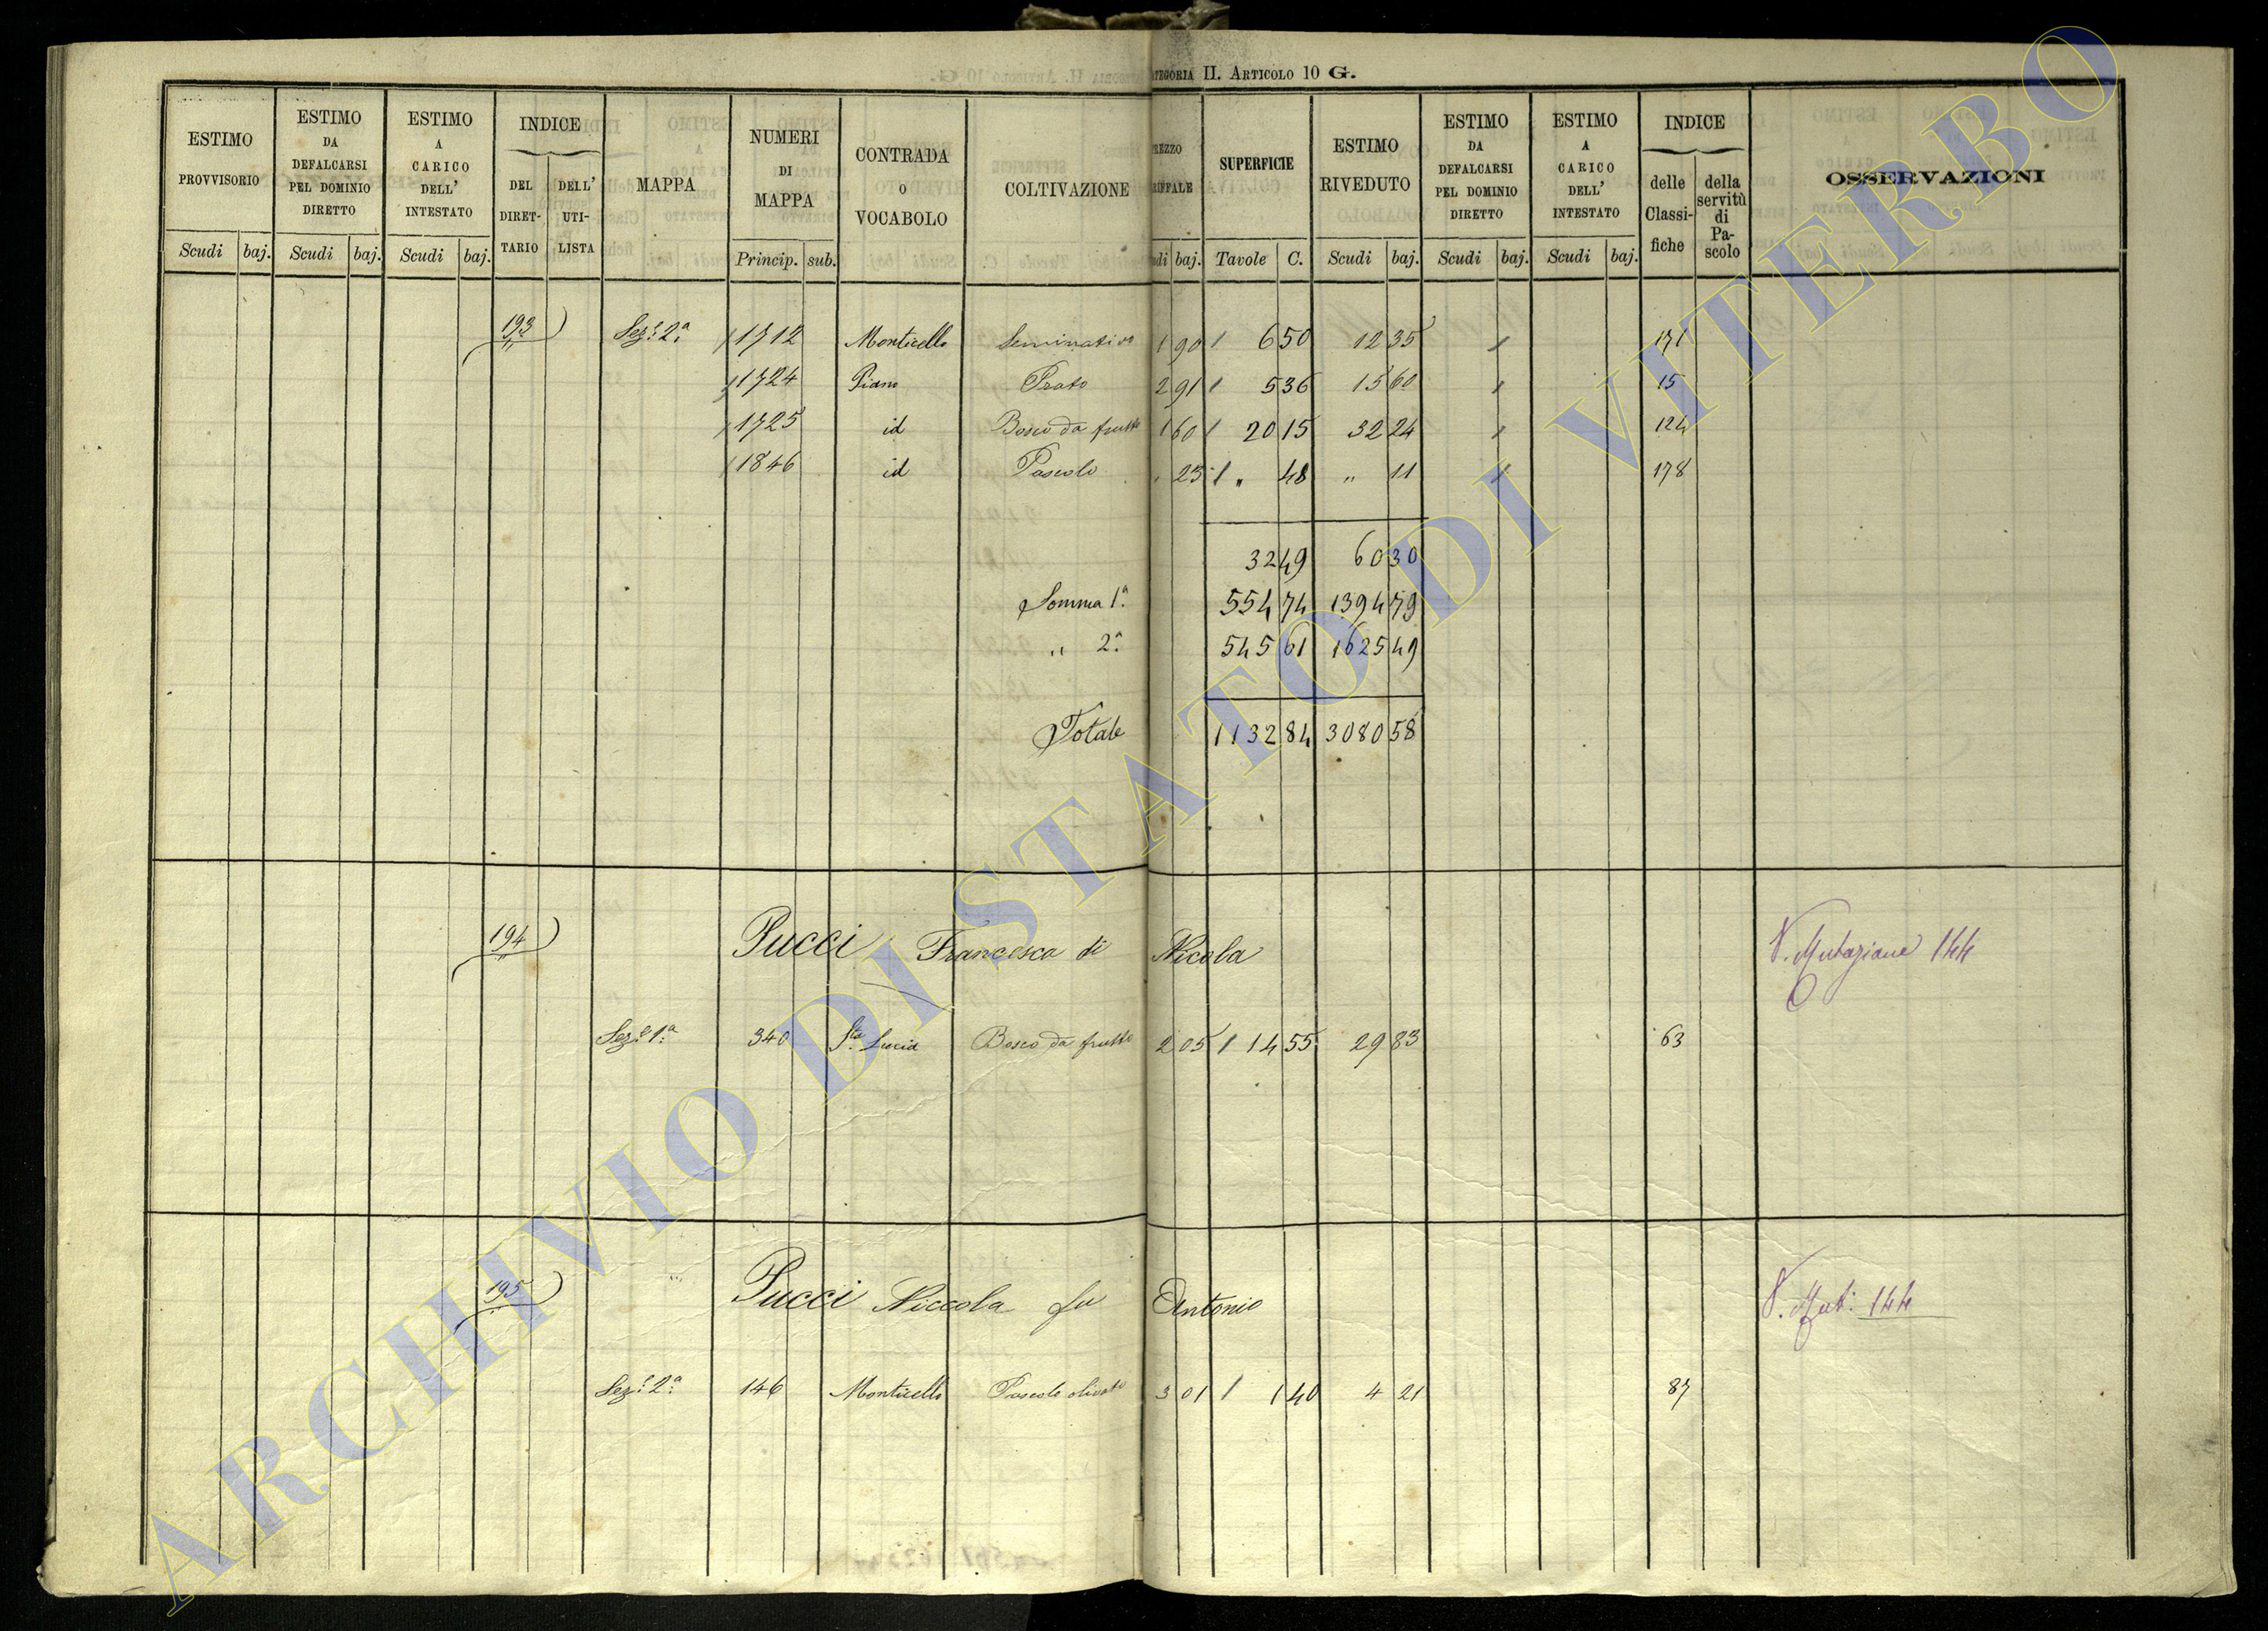 CATEGORIA II. ARTICOLO 10 G.
ESTIMO PROVVISORIO Scudi baj.
ESTIMO DA DEFALCARSI PEL DOMINIO DIRETTO Scudi baj.
ESTIMO A CARICO DELL' INTESTATO Scudi baj.
INDICE DEL DIRET-TARIO DELL' UTI-LISTA
MAPPA
NUMERI DI MAPPA Princip. sub.
CONTRADA O VOCABOLO
COLTIVAZIONE
REZZO RIFFALE di baj.
SUPERFICIE Tavole C.
ESTIMO RIVEDUTO Scudi baj.
ESTIMO DA DEFALCARSI PEL DOMINIO DIRETTO Scudi baj.
ESTIMO A CARICO DELL' INTESTATO Scudi baj.
INDICE delle Classi-fiche della servitù di Pa-scolo
OSSERVAZIONI
193 Sez.e 2.a 1712 Monticello Seminativo 1 90 6 50 12 35 171
1724 Piano Prato 2 91 5 36 15 60 15
1725 id Bosco da frutto 1 60 20 15 32 24 124
1846 id Pascolo " 23 " 48 " 11 178
32 49 60 30
Somma 1.a 554 74 1394 79
" 2.a 545 61 1625 49
Totale 1132 84 3080 58
194 Pucci Francesca di Nicola V. Mutazione 144
Sez.e 1.a 340 S.ta Lucia Bosco da frutto 2 05 14 55 29 83 63
195 Pucci Niccola fu Antonio V. Mut: 144
Sez.e 2.a 146 Monticello Pascolo olivato 3 01 1 40 4 21 87
ARCHIVIO DI STATO DI VITERBO